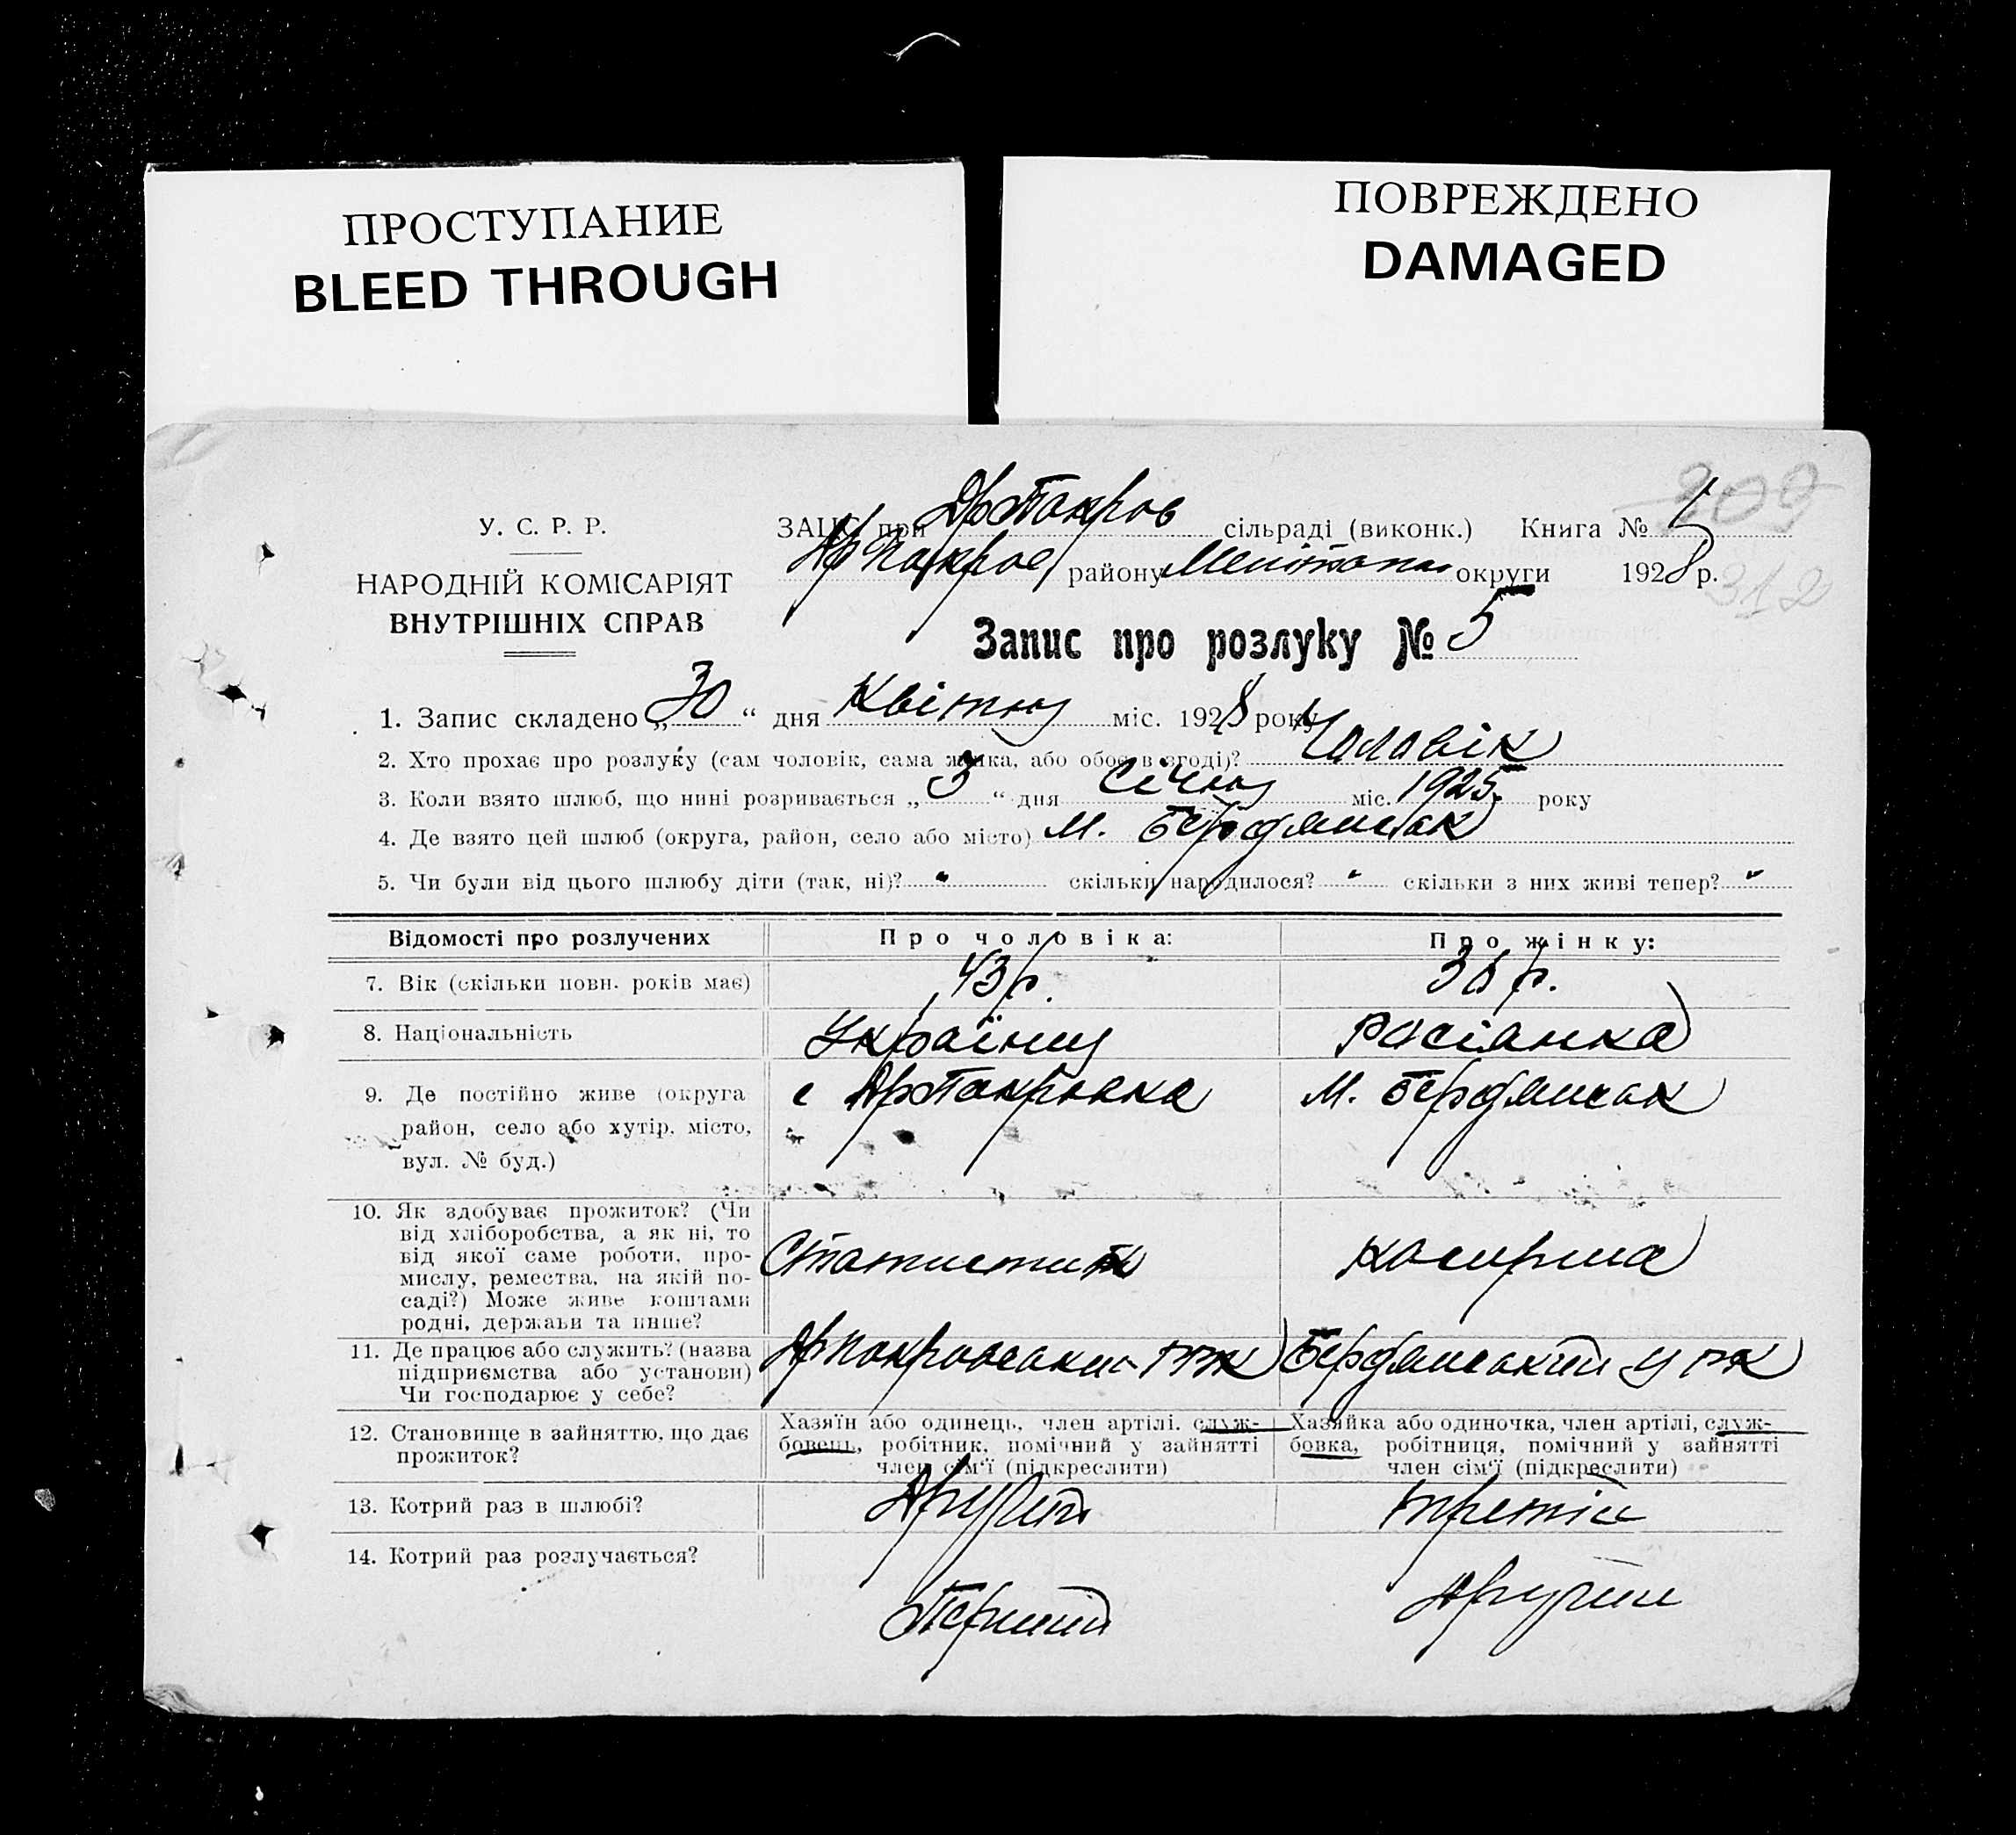 ПРОСТУПАНИЕ
BLEED THROUGH
ПОВРЕЖДЕНО
DAMAGED
У. С. Р. Р.
НАРОДНІЙ КОМІСАРІЯТ
ВНУТРІШНІХ СПРАВ
ЗАЦС при сільраді (виконк.) Книга №
209
району округи 1928 р.
312
Запис про розлуку № 5
1. Запис складено „30“ дня Квітня міс. 1928 року
2. Хто прохає про розлуку (сам чоловік, сама жінка, або обоє в згоді)? Чоловік
3. Коли взято шлюб, що нині розривається „3“ дня Січня міс. 1925 року
4. Де взято цей шлюб (округа, район, село або місто) М. Бердянськ
5. Чи були від цього шлюбу діти (так, ні)? " скільки народилося? " скільки з них живі тепер? "
Відомості про розлучених Про чоловіка: Про жінку:
7. Вік (скільки повн. років має) 43 р. р.
8. Національність Українец Росіянка
9. Де постійно живе (округа
район, село або хутір, місто,
вул. № буд.)
с М. Бердянськ
10. Як здобуває прожиток? (Чи
від хліборобства, а як ні, то
від якої саме роботи, про-
мислу, ремества, на якій по-
саді?) Може живе коштами
родні, держави та инше?
Статистик Касирша
11. Де працює або служить? (назва
підприємства або установи)
Чи господарює у себе?
Бердянський
12. Становище в зайняттю, що дає
прожиток?
Хазяїн або одинець, член артілі, служ-
бовець, робітник, помічний у зайнятті
член сім'ї (підкреслити)
Хазяйка або одиночка, член артілі, служ-
бовка, робітниця, помічний у зайнятті
член сім'ї (підкреслити)
13. Котрий раз в шлюбі? Другий третій
14. Котрий раз розлучається?
Перший Другий